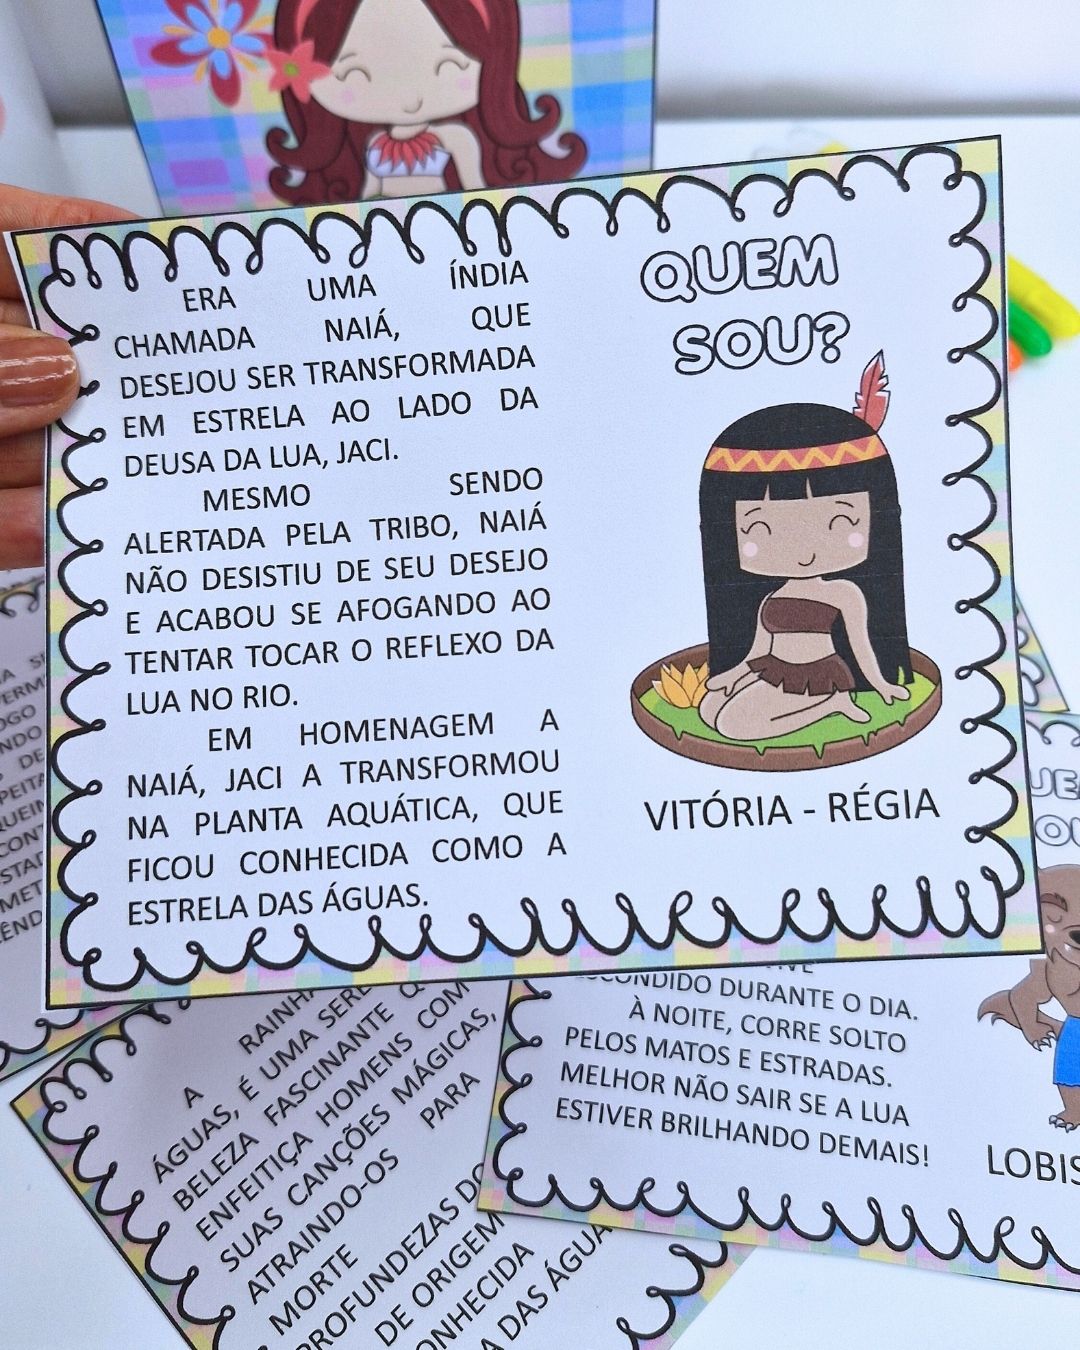 ERA UMA ÍNDIA
CHAMADA NAIÁ, QUE
DESEJOU SER TRANSFORMADA
EM ESTRELA AO LADO DA
DEUSA DA LUA, JACI.
MESMO SENDO
ALERTADA PELA TRIBO, NAIÁ
NÃO DESISTIU DE SEU DESEJO
E ACABOU SE AFOGANDO AO
TENTAR TOCAR O REFLEXO DA
LUA NO RIO.
EM HOMENAGEM A
NAIÁ, JACI A TRANSFORMOU
NA PLANTA AQUÁTICA, QUE
FICOU CONHECIDA COMO A
ESTRELA DAS ÁGUAS.
QUEM
SOU?
VITÓRIA - RÉGIA
DURANTE O DIA.
À NOITE, CORRE SOLTO
PELOS MATOS E ESTRADAS.
MELHOR NÃO SAIR SE A LUA
ESTIVER BRILHANDO DEMAIS!
LOBIS
A RAINHA
ÁGUAS, É UMA SERE
BELEZA FASCINANTE Q
ENFEITIÇA HOMENS COM
SUAS CANÇÕES MÁGICAS,
ATRAINDO-OS PARA
MORTE
PROFUNDEZAS DO
DE ORIGEM
ONHECIDA
A DAS ÁGUA